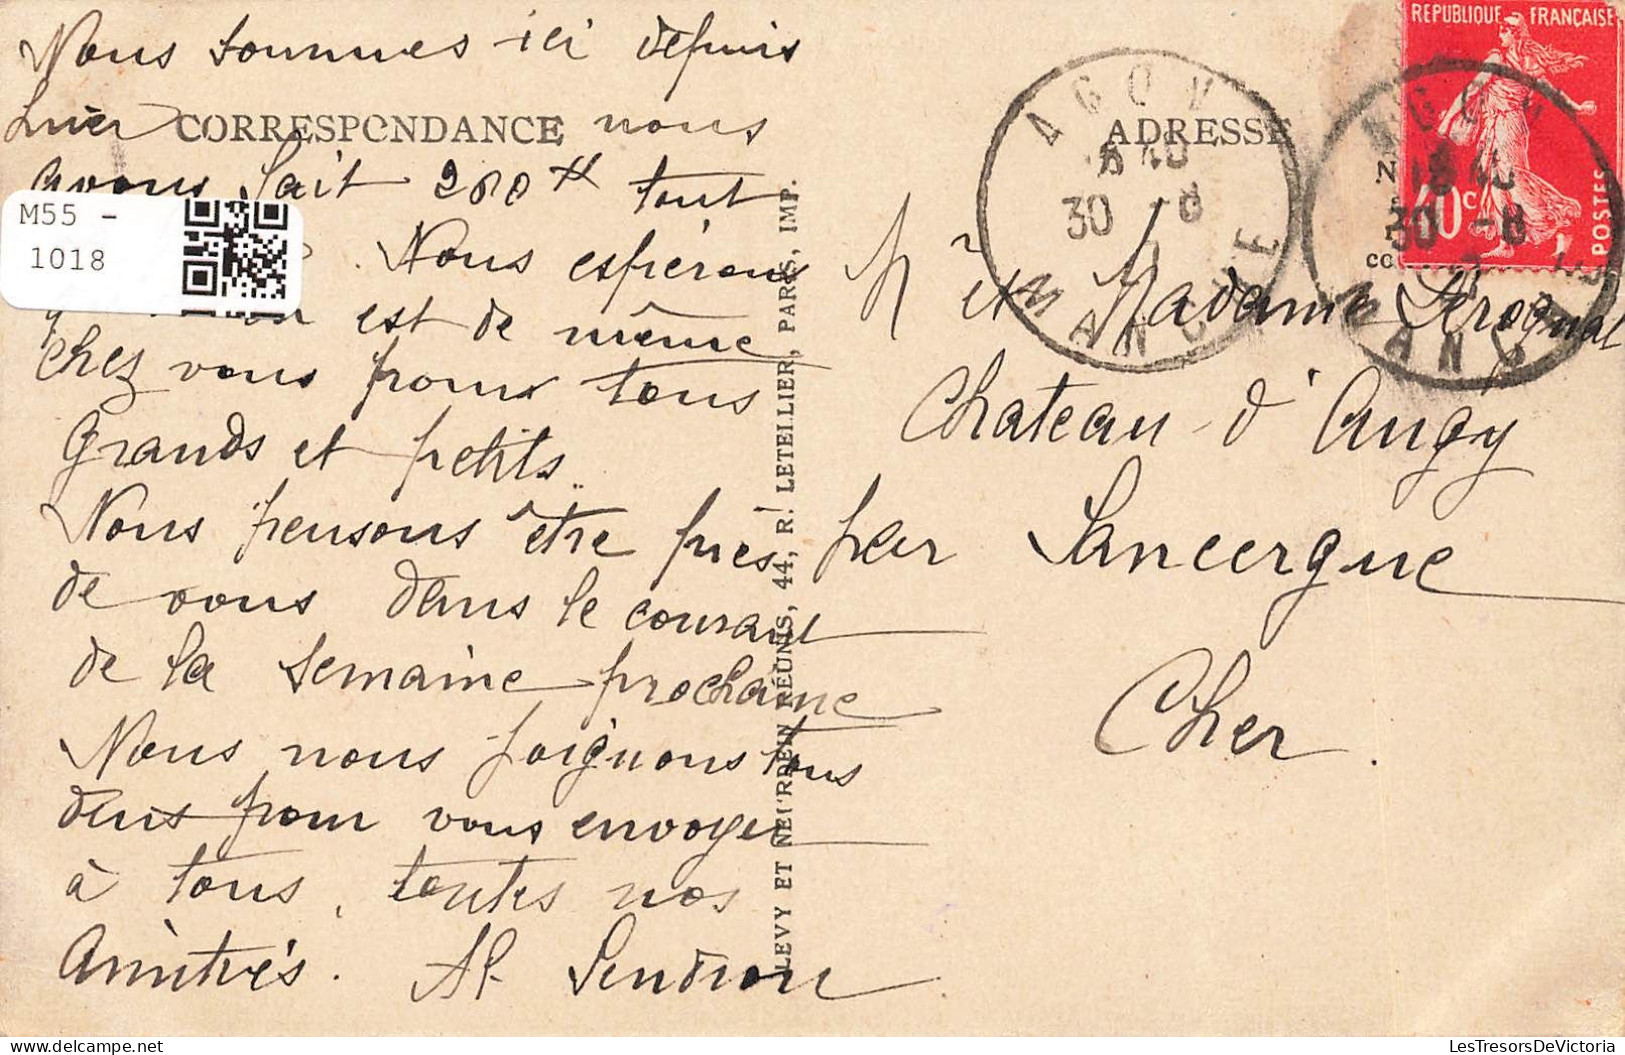 Nous sommes ici depuis
hier nous
CORRESPONDANCE
avons fait 280 tout
Nous espérons
est de même
chez vous pour tous
grands et petits.
Nous pensons être près
de vous dans le courant
de la semaine prochaine
Nous nous joignons tous
deux pour vous envoyer
à tous, toutes nos
Amitiés.
M55 -
1018
LEVY ET NEURDEIN RÉUNIS, 44, R. LETELLIER, PARIS, IMP.
ADRESSE
AGON
30 -8
MANCHE
AGON
18 40
30 -8
MANCHE
REPUBLIQUE FRANÇAISE
40c
POSTES
M et Madame
Château d'Augy
par Sancergue
Cher.
LesTresorsDeVictoria